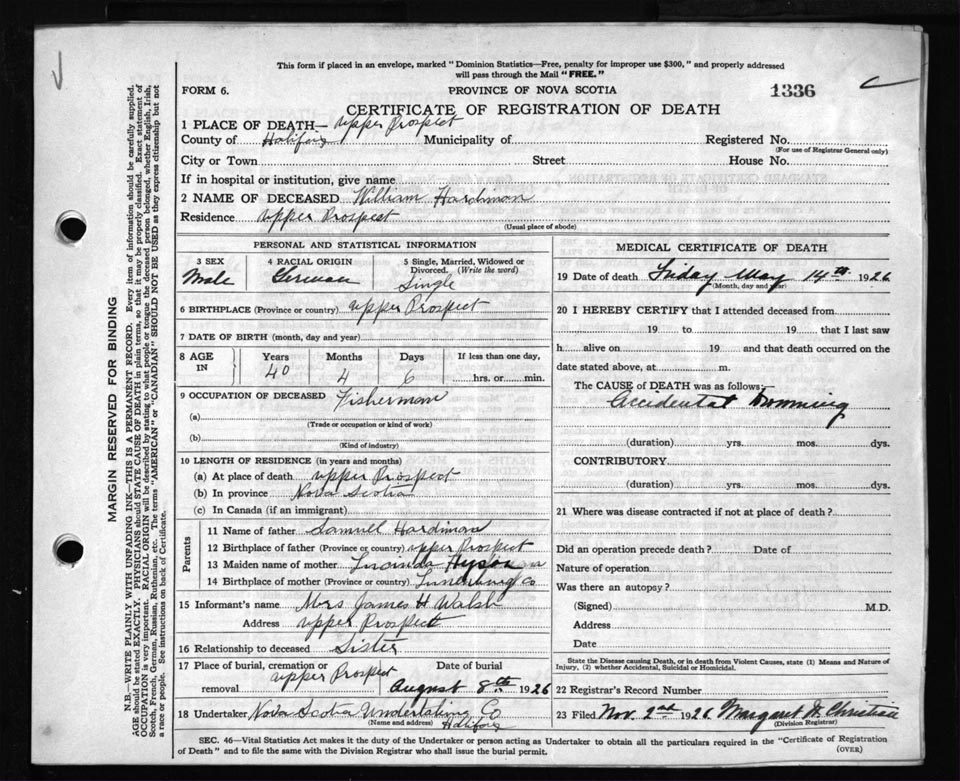 This form if placed in an envelope, marked "Dominion Statistics—Free, penalty for improper use $300," and properly addressed
will pass through the Mail "FREE."
FORM 6.
PROVINCE OF NOVA SCOTIA
1336
CERTIFICATE OF REGISTRATION OF DEATH
1 PLACE OF DEATH— upper Prospect
County of Halifax Municipality of Registered No.
(For use of Registrar General only)
City or Town Street House No.
If in hospital or institution, give name
2 NAME OF DECEASED William Hardiman
Residence upper Prospect
(Usual place of abode)
PERSONAL AND STATISTICAL INFORMATION
3 SEX 4 RACIAL ORIGIN 5 Single, Married, Widowed or
Divorced. (Write the word)
Male German Single
6 BIRTHPLACE (Province or country) upper Prospect
7 DATE OF BIRTH (month, day and year)
8 AGE IN Years Months Days If less than one day,
40 4 6 hrs. or min.
9 OCCUPATION OF DECEASED Fisherman
(a)
(Trade or occupation or kind of work)
(b)
(Kind of industry)
10 LENGTH OF RESIDENCE (in years and months)
(a) At place of death upper Prospect
(b) In province Nova Scotia
(c) In Canada (if an immigrant)
Parents
11 Name of father Samuel Hardiman
12 Birthplace of father (Province or country) upper Prospect
13 Maiden name of mother Lucinda
14 Birthplace of mother (Province or country) Lunenburg Co
15 Informant's name Mrs James H Walsh
Address upper Prospect
16 Relationship to deceased Sister
17 Place of burial, cremation or Date of burial
removal upper Prospect August 8th 1926
18 Undertaker Nova Scotia Undertaking Co
(Name and address) Halifax
MEDICAL CERTIFICATE OF DEATH
19 Date of death Friday May 14th 1926
(Month, day and year)
20 I HEREBY CERTIFY that I attended deceased from
19 to 19 that I last saw
h alive on 19 and that death occurred on the
date stated above, at m.
The CAUSE of DEATH was as follows:—
Accidental Drowning
(duration) yrs. mos. dys.
CONTRIBUTORY
(duration) yrs. mos. dys.
21 Where was disease contracted if not at place of death?
Did an operation precede death? Date of
Nature of operation
Was there an autopsy?
(Signed) M.D.
Address
Date
State the Disease causing Death, or in death from Violent Causes, state (1) Means and Nature of
Injury, (2) whether Accidental, Suicidal or Homicidal.
22 Registrar's Record Number
23 Filed Nov. 2nd 1926 Margaret Christian
(Division Registrar)
SEC. 46—Vital Statistics Act makes it the duty of the Undertaker or person acting as Undertaker to obtain all the particulars required in the "Certificate of Registration
of Death" and to file the same with the Division Registrar who shall issue the burial permit.
(OVER)
MARGIN RESERVED FOR BINDING
N.B.—WRITE PLAINLY WITH UNFADING INK—THIS IS A PERMANENT RECORD. Every item of information should be carefully supplied.
AGE should be stated EXACTLY. PHYSICIANS should STATE CAUSE OF DEATH in plain terms, so that it may be properly classified. Exact statement of
OCCUPATION is very important. RACIAL ORIGIN will be described by stating to what people or tongue the deceased person belonged, whether English, Irish,
Scotch, French, German, Russian, Ruthenian, etc. The terms "AMERICAN" or "CANADIAN" SHOULD NOT BE USED as they express citizenship but not
a race or people. See instructions on back of Certificate.